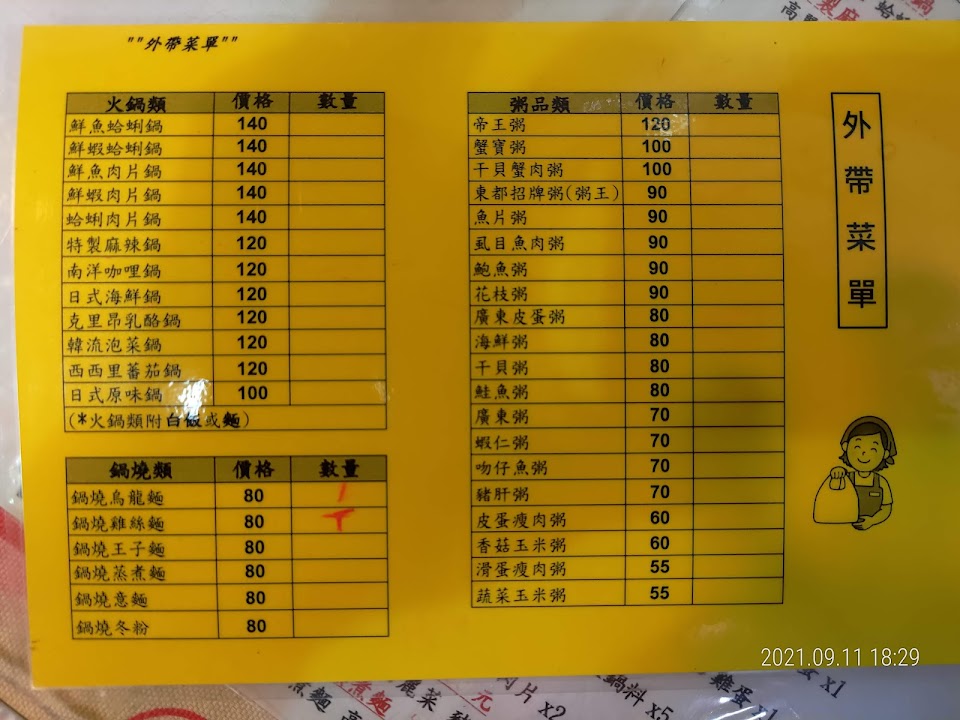 ""外帶菜單""
火鍋類 價格 數量
鮮魚蛤蜊鍋 140
鮮蝦蛤蜊鍋 140
鮮魚肉片鍋 140
鮮蝦肉片鍋 140
蛤蜊肉片鍋 140
特製麻辣鍋 120
南洋咖哩鍋 120
日式海鮮鍋 120
克里昂乳酪鍋 120
韓流泡菜鍋 120
西西里蕃茄鍋 120
日式原味鍋 100
(*火鍋類附白飯或麵)
鍋燒類 價格 數量
鍋燒烏龍麵 80
鍋燒雞絲麵 80
鍋燒王子麵 80
鍋燒蒸煮麵 80
鍋燒意麵 80
鍋燒冬粉 80
粥品類 價格 數量
帝王粥 120
蟹寶粥 100
干貝蟹肉粥 100
東都招牌粥(粥王) 90
魚片粥 90
虱目魚肉粥 90
鮑魚粥 90
花枝粥 90
廣東皮蛋粥 80
海鮮粥 80
干貝粥 80
鮭魚粥 80
廣東粥 70
蝦仁粥 70
吻仔魚粥 70
豬肝粥 70
皮蛋瘦肉粥 60
香菇玉米粥 60
滑蛋瘦肉粥 55
蔬菜玉米粥 55
外帶菜單
2021.09.11 18:29
肉片 x2
鍋料 x5
雞蛋 x1